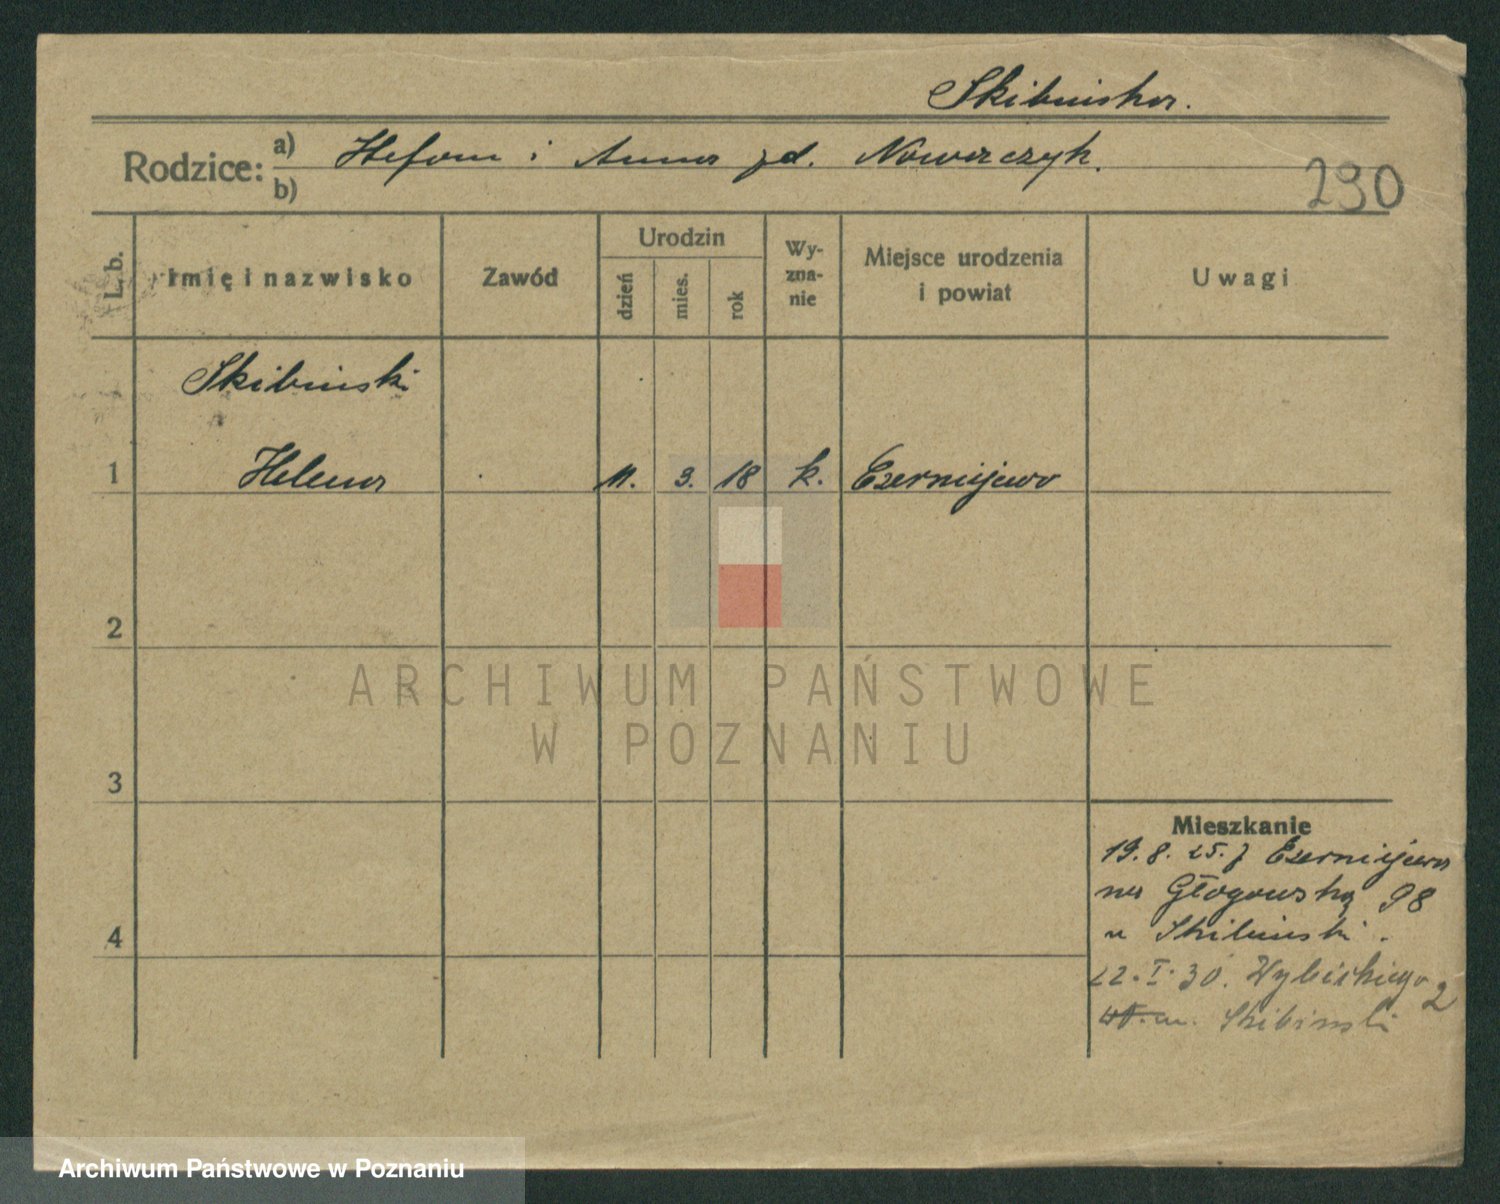 Skibinska.
Rodzice: a) Stefan i Anna zd. Nowaczyk.
b)
290
L. b.
Imię i nazwisko
Zawód
Urodzin
dzień
mies.
rok
Wy-
zna-
nie
Miejsce urodzenia
i powiat
Uwagi
Skibinski
1 Helena 11. 3. 18 k. Czerniejewo
2
3
4
Mieszkanie
19. 8. 25. z Czerniejewa
na Głogowską 98
u Skibinski.
22. I. 30. Wybickiego 2
u. Skibinski
ARCHIWUM PAŃSTWOWE
W POZNANIU
Archiwum Państwowe w Poznaniu